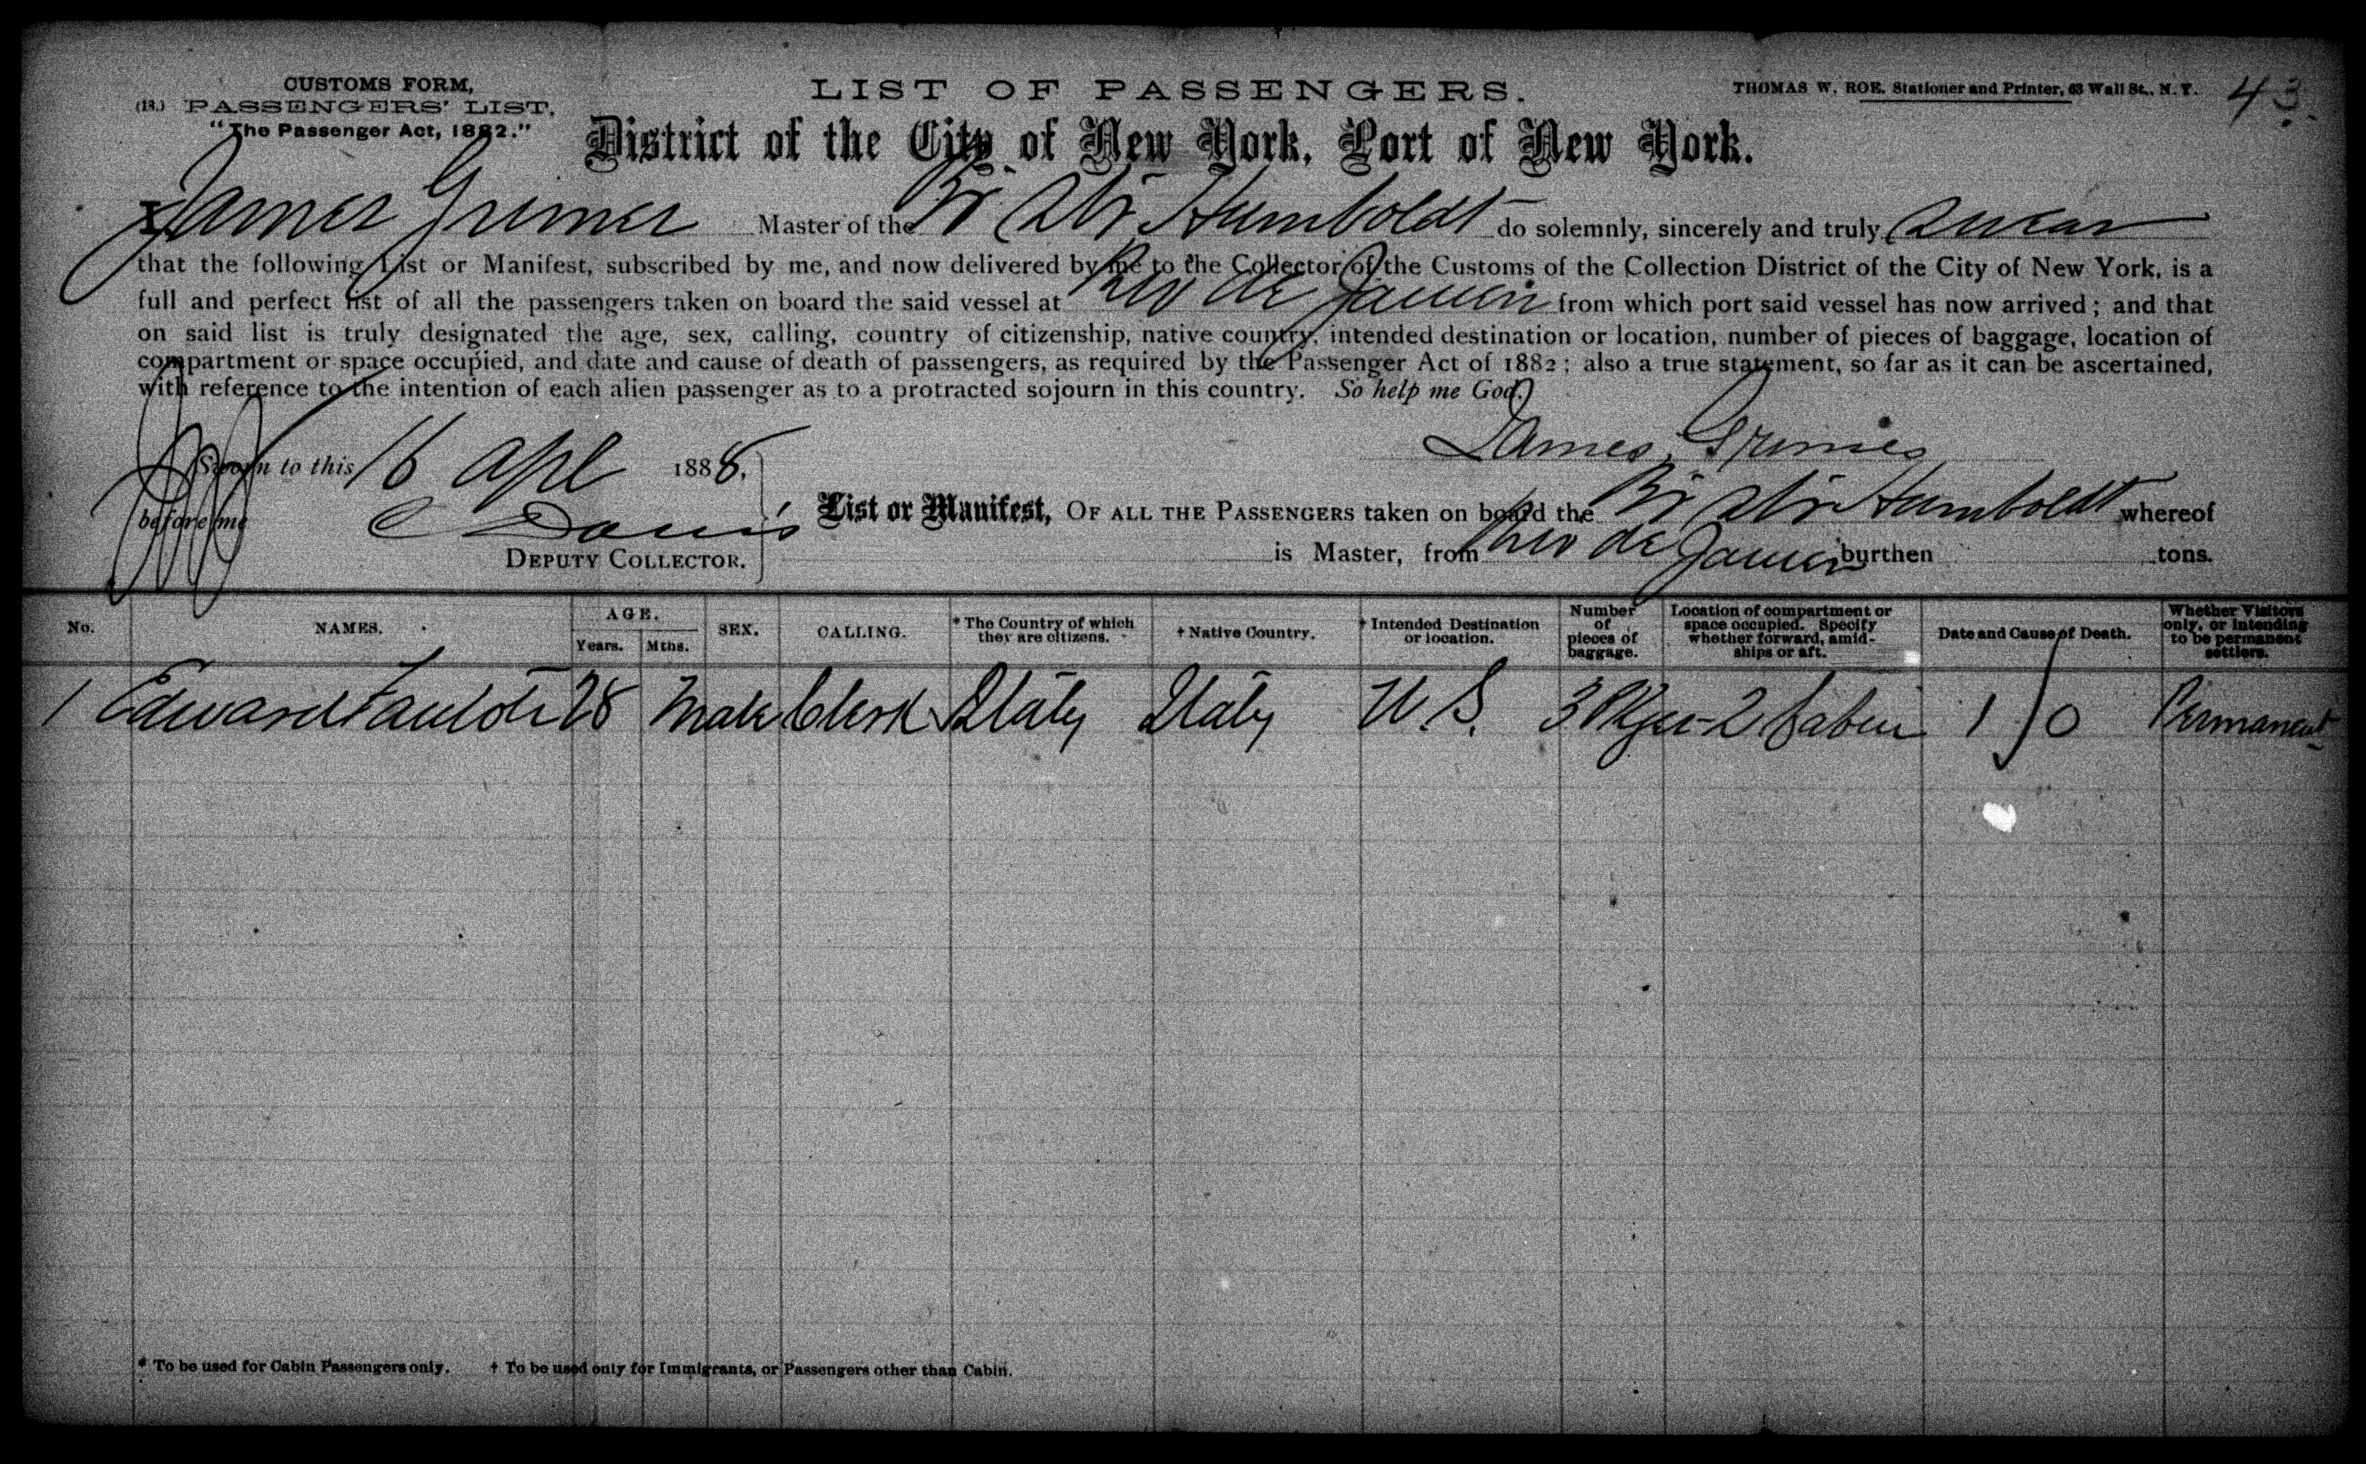 CUSTOMS FORM,
(13.) PASSENGERS' LIST,
"The Passenger Act, 1882."
LIST OF PASSENGERS.
THOMAS W. ROE. Stationer and Printer, 63 Wall St., N. Y.
43
District of the City of New York, Port of New York.
I James Grimes Master of the Br Str Humboldt do solemnly, sincerely and truly swear
that the following List or Manifest, subscribed by me, and now delivered by me to the Collector of the Customs of the Collection District of the City of New York, is a
full and perfect list of all the passengers taken on board the said vessel at Rio de Janeiro from which port said vessel has now arrived; and that
on said list is truly designated the age, sex, calling, country of citizenship, native country, intended destination or location, number of pieces of baggage, location of
compartment or space occupied, and date and cause of death of passengers, as required by the Passenger Act of 1882; also a true statement, so far as it can be ascertained,
with reference to the intention of each alien passenger as to a protracted sojourn in this country. So help me God.
James Grimes
Sworn to this 16 Apl 1888,
before me C Davis
DEPUTY COLLECTOR.
List or Manifest, OF ALL THE PASSENGERS taken on board the Br Str Humboldt whereof
is Master, from Rio de Janeiro burthen tons.
No. NAMES. AGE. Years. Mths. SEX. CALLING. * The Country of which they are citizens. † Native Country. † Intended Destination or location. Number of pieces of baggage. Location of compartment or space occupied. Specify whether forward, amidships or aft. Date and Cause of Death. Whether Visitors only, or intending to be permanent settlers.
1 Edward 28 Male Clerk Italy Italy U.S. 3 Pkges 2 Cabin 1 / 0 Permanent
* To be used for Cabin Passengers only. † To be used only for Immigrants, or Passengers other than Cabin.